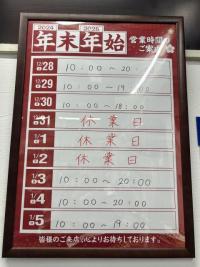 2024 2025
年末年始 営業時間の
ご案内
12/28 10:00〜20:
12/29 10:00〜19:00
12/30 10:00〜18:00
12/31 休業日
1/1 休業日
1/2 休業日
1/3 10:00〜20:00
1/4 10:00〜20:00
1/5 10:00〜19:00
皆様のご来店、心よりお待ちしております。